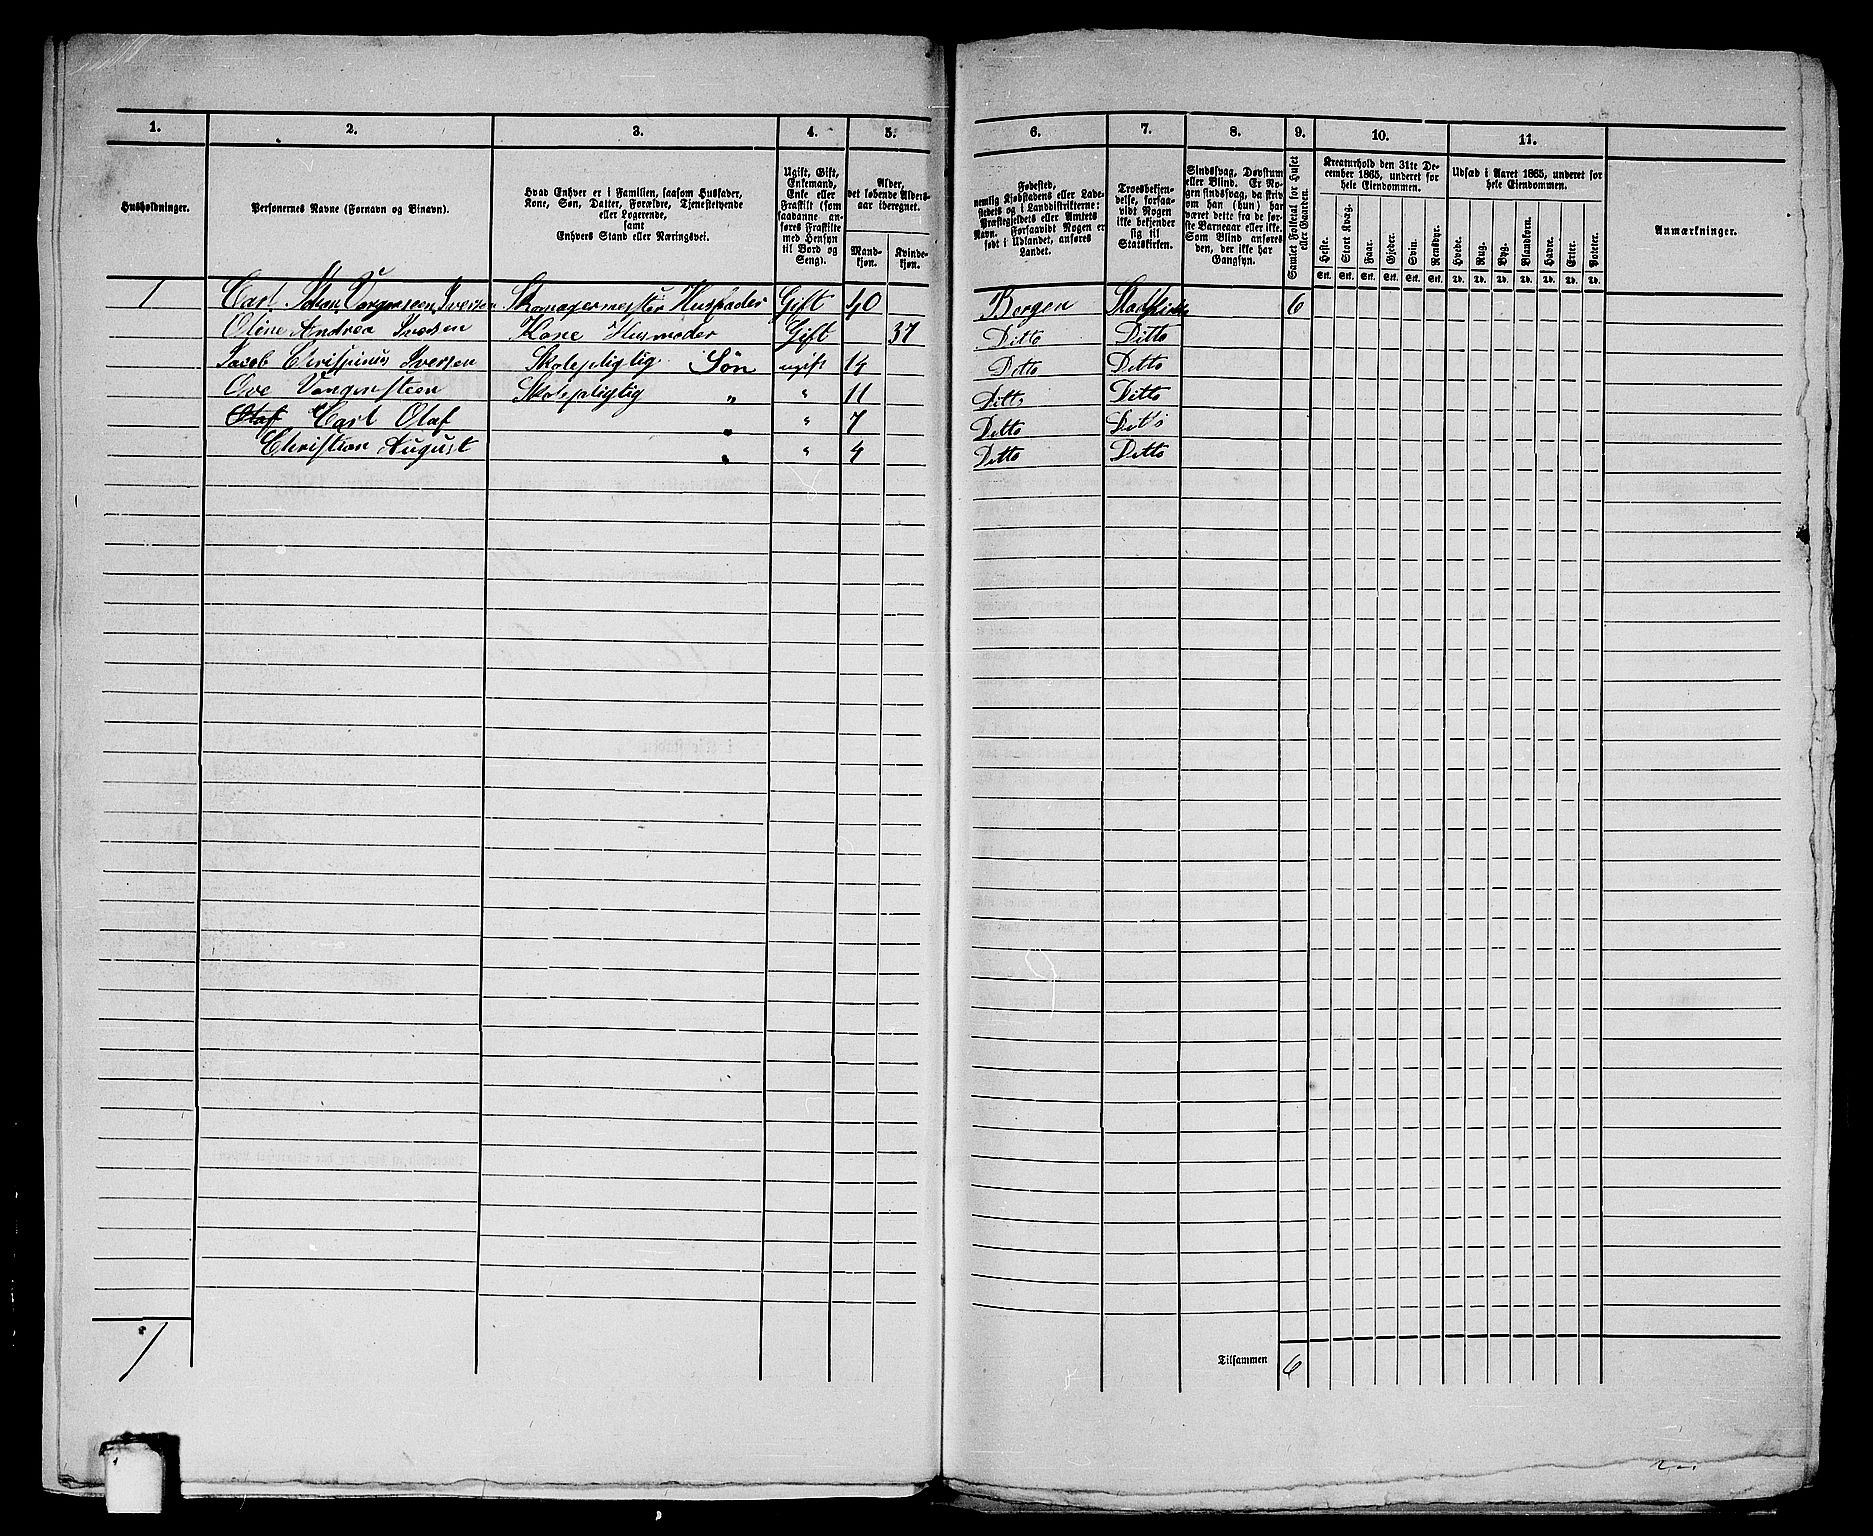 1. 2. 3. 4. 5. 6. 7. 8. 9. 10. 11.
Husholdninger.
Personernes Navne (Fornavn og Binavn).
Hvad Enhver er i Familien, saasom Husfader,
Kone, Søn, Datter, Forældre, Tjenestetyende
eller Logerende,
samt
Enhvers Stand eller Næringsvei.
Ugift, Gift,
Enkemand,
Enke eller
Fraskilt (som
saadanne an-
føres Fraskilte
med Hensyn
til Bord og
Seng).
Alder,
det løbende Alders-
aar iberegnet.
Mand-
kjøn.
Kvinde-
kjøn.
Fødested,
nemlig Kjøbstadens eller Lade-
stedets og i Landdistrikterne:
Præstegjeldets eller Amtets
Navn. Forsaavidt Nogen er
født i Udlandet, anføres
Landet.
Troesbekjen-
delse, forsaa-
vidt Nogen
ikke bekjender
sig til
Statskirken.
Sindssvag, Døvstum
eller Blind. Er No-
gen sindssvag, da skriv
om han (hun) har
været dette fra de før-
ste Barneaar eller ikke.
Som Blind anføres
den, der ikke har
Gangsyn.
Samlet Folketal for Huset
eller Gaarden.
Kreaturhold den 31te De-
cember 1865, underet for
hele Eiendommen.
Heste.
Stort Kvæg.
Faar.
Gjeder.
Svin.
Rensdyr.
Stk. Stk. Stk. Stk. Stk. Stk.
Udsæd i Aaret 1865, underet for
hele Eiendommen.
Hvede.
Rug.
Byg.
Blandkorn.
Havre.
Erter.
Poteter.
Td. Td. Td. Td. Td. Td. Td.
Anmærkninger.
1 Carl Johan Vangensteen Iversen Skomagermester Husfader Gift 40 Bergen Statskirke 6
Oline Andrea Iversen Kone Husmoder Gift 37 Ditto Ditto
Jacob Chrispinus Iversen Skolepligtig Søn ugift 14 Ditto Ditto
Ove Vangensteen Skolepligtig " " 11 Ditto Ditto
Olaf Carl Olaf " " 7 Ditto Ditto
Christian August " " 4 Ditto Ditto
1
Tilsammen 6